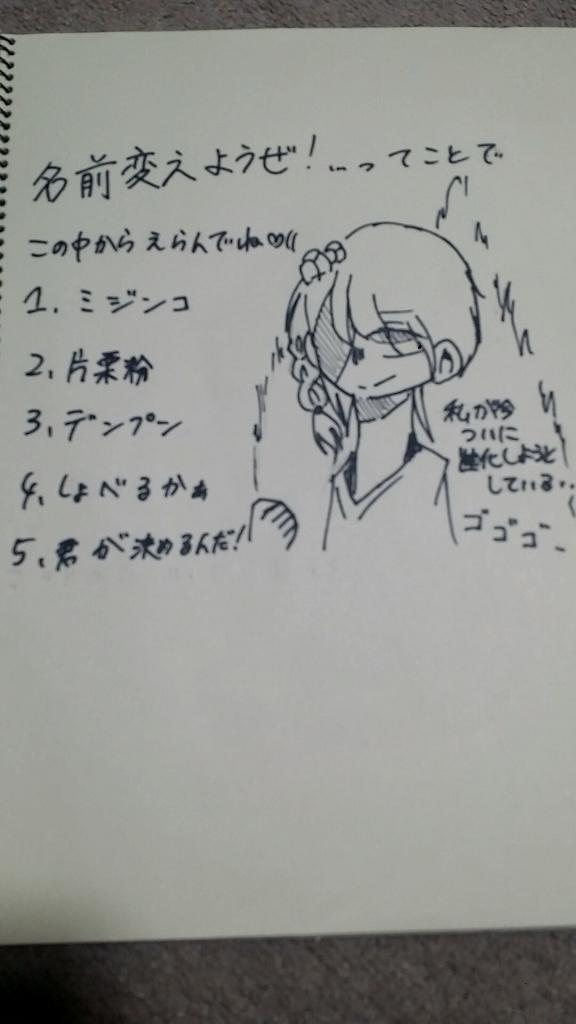 名前変えようぜ!…ってことで
この中からえらんでね♡((
1、ミジンコ
2、片栗粉
3、デンプン
4、しょべるかぁ
5、君が決めるんだ!
私が今
ついに
進化しようと
している…
ゴゴゴ…